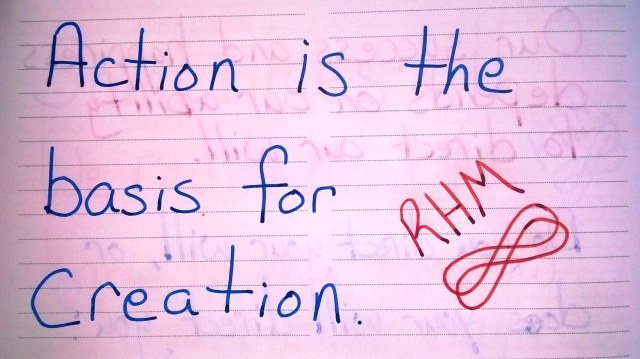 Action is the
basis for
RHM
Creation.